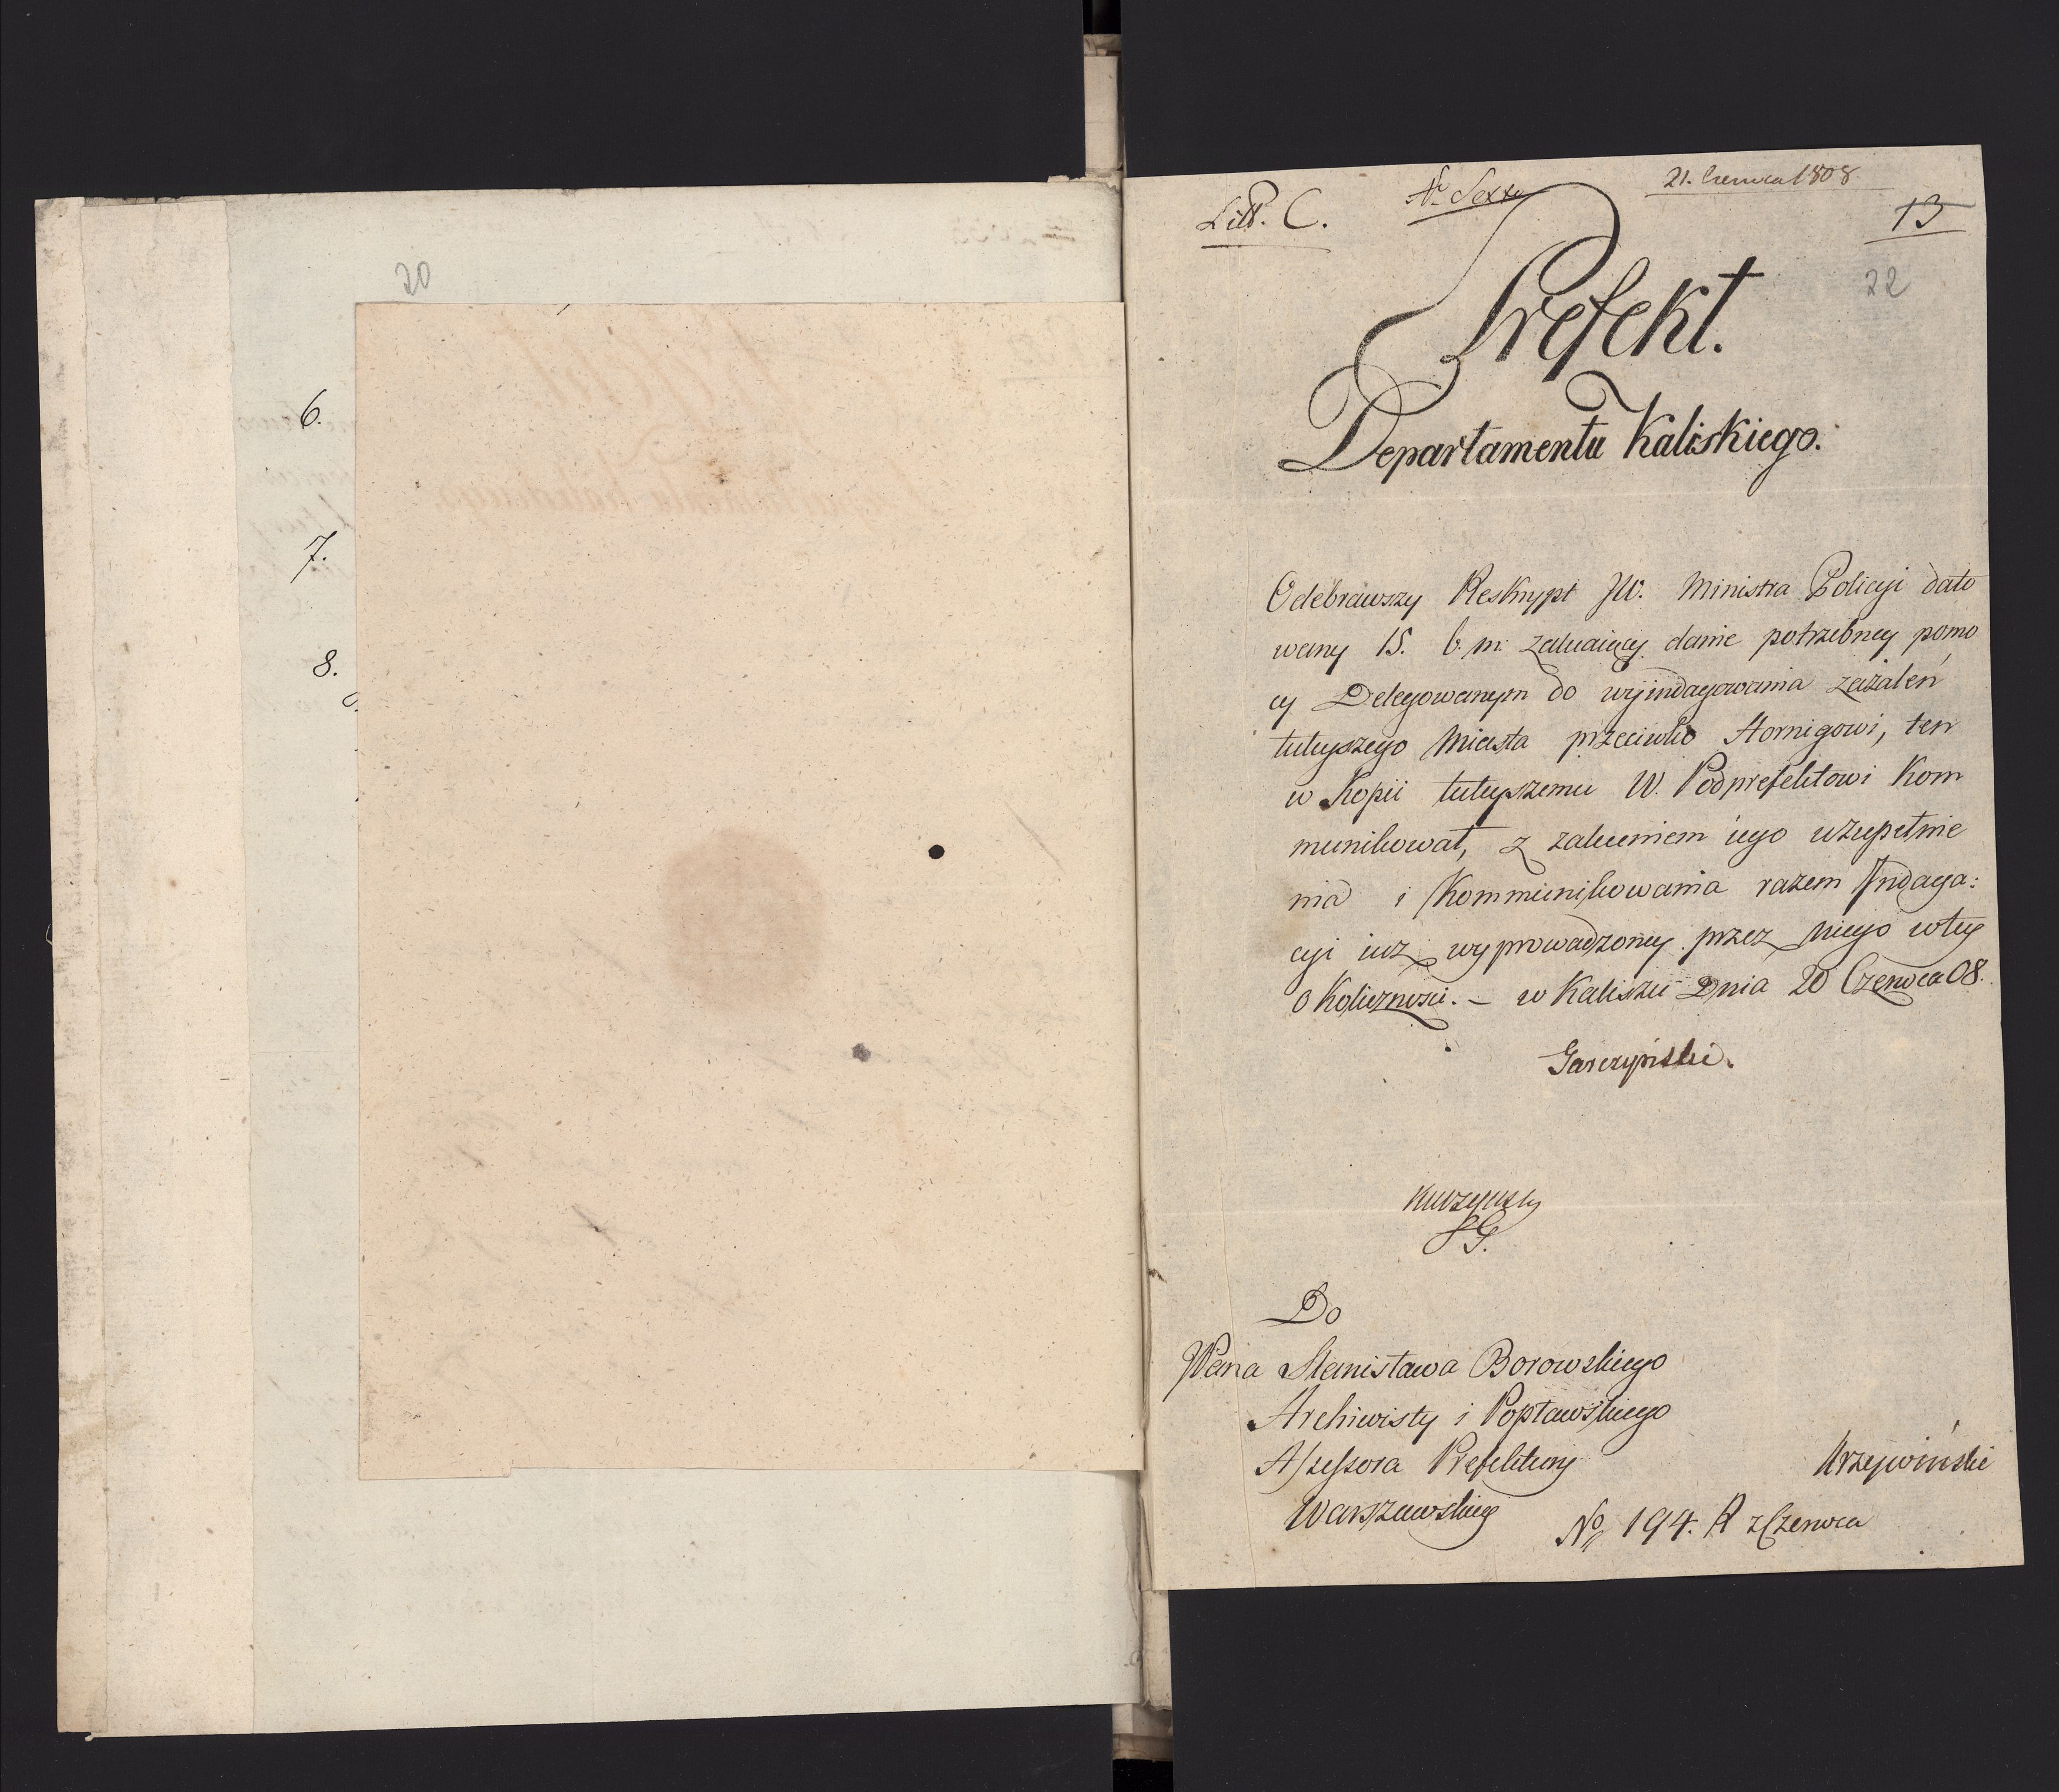 20
6.
7.
8.
Litt. C.
N. Sexto
21. Czerwca 1808
13
22
Prefekt.
Departamentu Kaliskiego.
Odebrawszy Reskrypt JW. Ministra Policyi dato
wany 15. b. m. zalecaiący danie potrzebney pomo
cy Delegowanym do wyindagowania zażaleń
tuteyszego Miasta przeciwko Hornigowi, ten
w Kopii tuteyszemu W. Podprefektowi Kom
munikował, z zaleceniem iego uzupełnie
nia i Kommunikowania razem Indaga:
cyi iuż wyprowadzoney przez niego w tey
okoliczności. – w Kaliszu Dnia 20 Czerwca 08.
Garczyński.
SG.
Do
WPana Stanisława Borowskiego
Archiwisty i Popławskiego
Assessora Prefektury
Warszawskiey
Krzywiński
No 194. R z Czerwca